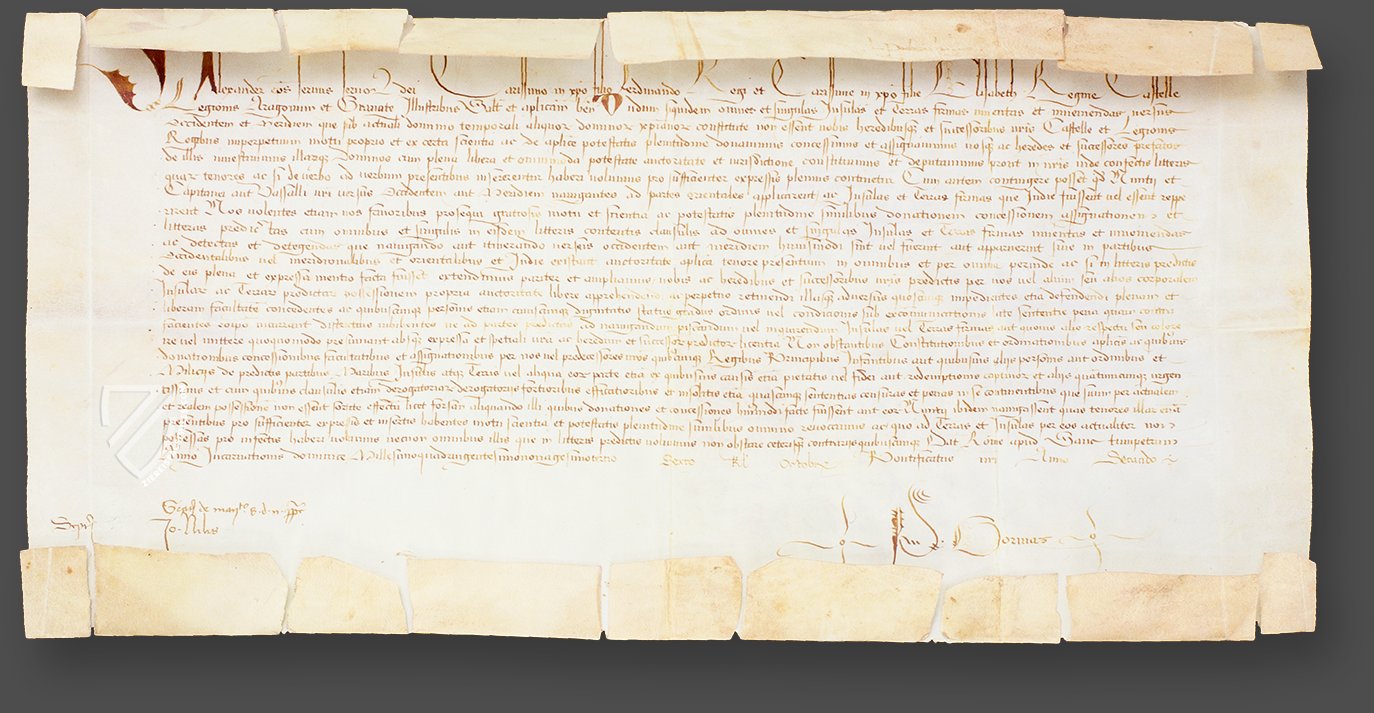 Alexander eps servus servor dei Carissimo in xpo filio Ferdinando Regi et Carissime in xpo filie Elisabeth Regine Castelle
Legionis Aragonum et Granate Illustribus Salt et aplicam ben Dudum siquidem omnes et singulas Insulas et Terras firmas inventas et inveniendas versus
Occidentem et Meridiem que sub actuali dominio temporali aliquor dominor xpianor constitute non essent vobis heredibusq et successoribus vris Castelle et Legionis
Regibus imperpetuum motu proprio et ex certa scientia ac de aplice potestatis plenitudine donavimus concessimus et assignavimus vosq ac heredes et successores prefatos
de illis investivimus illarumq dominos cum plena libera et omnimoda potestate auctoritate et iurisdictione constituimus et deputavimus prout in nris inde confectis litteris
quar tenores ac si de verbo ad verbum presentibus insererentur haberi volumus pro sufficienter expressis plenius continetur Cum autem contingere posset qd Nuntii et
Capitanei aut Vassalli vri versus Occidentem aut Meridiem navigantes ad partes Orientales applicarent ac Insulas et Terras firmas que Indie fuissent vel essent reppe
rirent Nos volentes etiam vos favoribus prosequi gratiosis motu et scientia ac potestatis plenitudine similibus donationem concessionem assignationem et
litteras predictas cum omnibus et singulis in eisdem litteris contentis clausulis ad omnes et singulas Insulas et Terras firmas inventas et inveniendas
ac detectas et detegendas que navigando aut itinerando versus occidentem aut meridiem huiusmodi sint vel fuerint aut apparuerint sive in partibus
Occidentalibus vel meridionalibus et orientalibus et Indie existant auctoritate aplica tenore presentium in omnibus et per omnia perinde ac si in litteris predictis
de eis plena et expressa mentio facta fuisset extendimus pariter et ampliamus vobis ac heredibus et successoribus vris predictis per vos vel alium seu alios corporalem
Insular ac Terrar predictar possessionem propria auctoritate libere apprehendendi ac perpetuo retinendi illasq adversus quoscunq impedientes etia defendendi plenam et
liberam facultatem concedentes ac quibuscunq personis etiam cuiuscunq dignitatis status gradus ordinis vel condicionis sub excommunicationis late sententie pena quam contra
facientes eo ipso incurrant districtius inhibentes ne ad partes predictas ad navigandum piscandum vel inquirendum Insulas vel Terras firmas aut quovis alio respectu seu colore
ire vel mittere quoquomodo presumant absq expressa et speciali vra ac heredum et successor predictor licentia Non obstantibus Constitutionibus et ordinationibus aplicis ac quibusvis
donationibus concessionibus facultatibus et assignationibus per nos vel predecessores nros quibuscunq Regibus Principibus Infantibus aut quibusvis aliis personis aut ordinibus et
Miliciis de predictis partibus Maribus Insulis atq Terris vel aliqua eor parte etia ex quibusvis causis etia pietatis vel fidei aut redemptionis captivor et aliis quantuncunq urgen
tissimis et cum quibusvis clausulis etiam derogatoriar derogatoriis fortioribus efficatioribus et insolitis etia quascunq sententias censuras et penas in se continentibus que suum per actualem
et realem possessione non essent sortite effectu licet forsan aliquando illi quibus donationes et concessiones huiusmodi facte fuissent aut eor Nuntii ibidem navigassent quas tenores illar etia
presentibus pro sufficienter expressis et insertis habentes motu scientia et potestatis plenitudine similibus omnino revocamus ac quo ad Terras et Insulas per eos actualiter non
possessas pro infectis haberi volumus necnon omnibus illis que in litteris predictis voluimus non obstare ceterisq contrariis quibuscunq Dat Rome apud Sanc tumpetrum
Anno Incarnationis dominice Millesimoquadringentesimononagesimotertio Sexto Kl Octobr Pontificatus nri Anno Secundo
Jo. Nilis